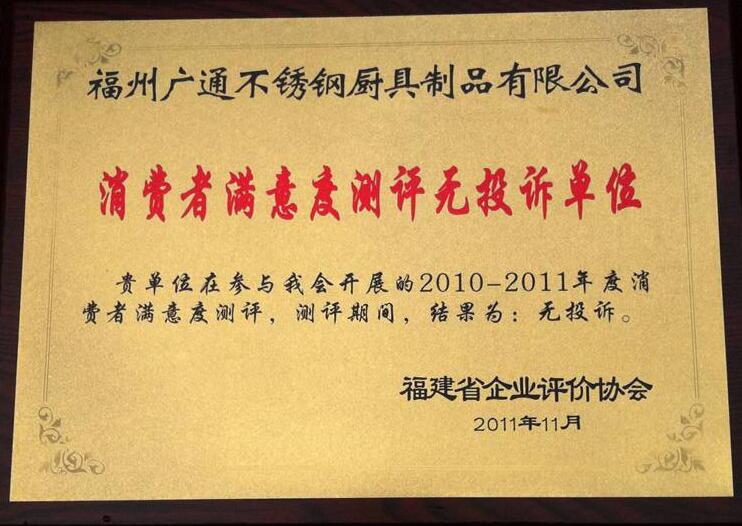 福州广通不锈钢厨具制品有限公司
消费者满意度测评无投诉单位
贵单位在参与我会开展的2010-2011年度消
费者满意度测评，测评期间，结果为：无投诉。
福建省企业评价协会
2011年11月